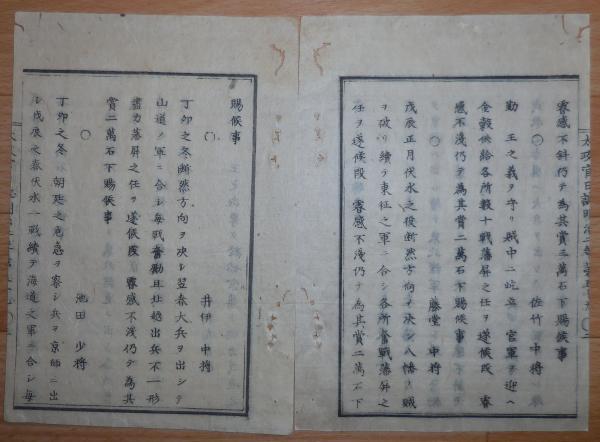 叡感不斜仍テ為其賞三萬石下賜候事
〇 佐竹 中将
勤 王之義ヲ守リ賊中ニ屹立 官軍ヲ迎ヘ
金穀候給各所数十戦藩屏之任ヲ遂候段 叡
感不淺仍テ為其賞二萬石下賜候事
〇 藤堂 中将
戊辰正月伏水之役断然方向ヲ決シ八幡ノ賊
ヲ破リ續テ東征之軍ニ合シ各所奮戦藩屏之
任ヲ遂候段 叡感不淺仍テ為其賞二萬石下
賜候事
〇 井伊 中将
丁卯之冬断然方向ヲ决シ翌春大兵ヲ出シテ
山道ノ軍ニ合シ毎戦奮勵且壮趣出兵不一形
盡力藩屏之任ヲ遂候段 叡感不淺仍テ為其
賞二萬石下賜候事
〇 池田 少将
丁卯之冬 朝廷之危急ヲ察シ兵ヲ京師ニ出
シ戊辰之春伏水一戦續テ海道之軍ニ合シ毎
太政官日誌明治二年